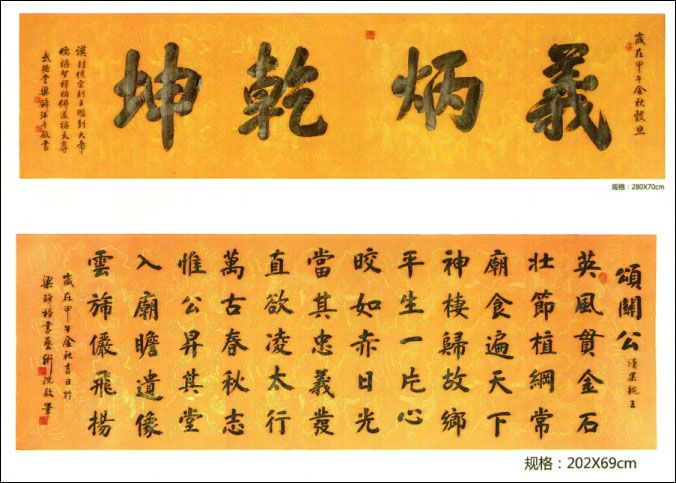 歲在甲午金秋穀旦
義炳乾坤
漢封侯宋封王明封大帝
儒稱聖釋稱佛道稱天尊
敬書
规格：280X70cm
頌關公
清果親王
英風貫金石
壯節植綱常
廟食遍天下
神棲歸故鄉
平生一片心
皎如赤日光
當其忠義發
直欲凌太行
萬古春秋志
惟公昇其堂
入廟瞻遺像
雲旆儼飛揚
歲在甲午金秋吉日於
書藝術院敬書
规格：202X69cm